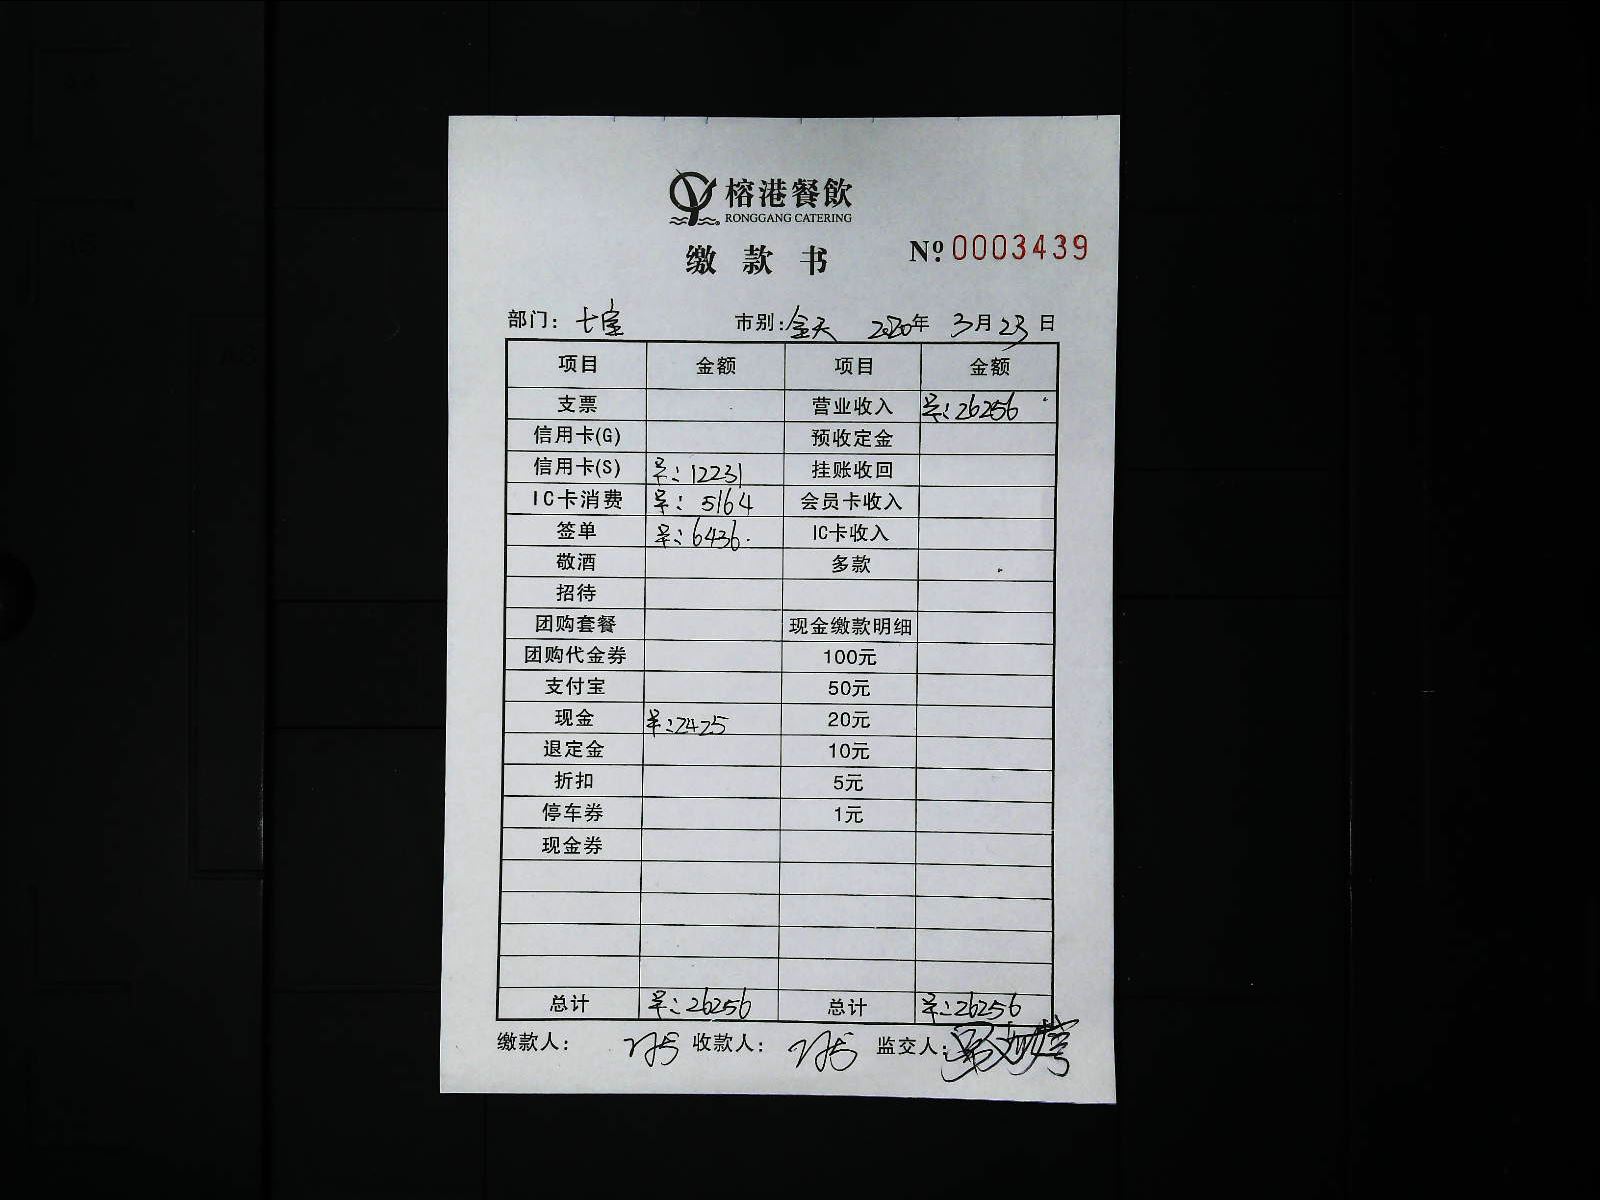 榕港餐飲
RONGGANG CATERING
缴款书 Nº 0003439
部门：七宝 市别：全天 2020年3月23日
项目 金额 项目 金额
支票 营业收入 ¥：26256
信用卡(G) 预收定金
信用卡(S) ¥：12231 挂账收回
IC卡消费 ¥：5164 会员卡收入
签单 ¥：6436. IC卡收入
敬酒 多款
招待
团购套餐 现金缴款明细
团购代金券 100元
支付宝 50元
现金 ¥：2425 20元
退定金 10元
折扣 5元
停车券 1元
现金券
总计 ¥：26256 总计 ¥：26256
缴款人： 收款人： 监交人：